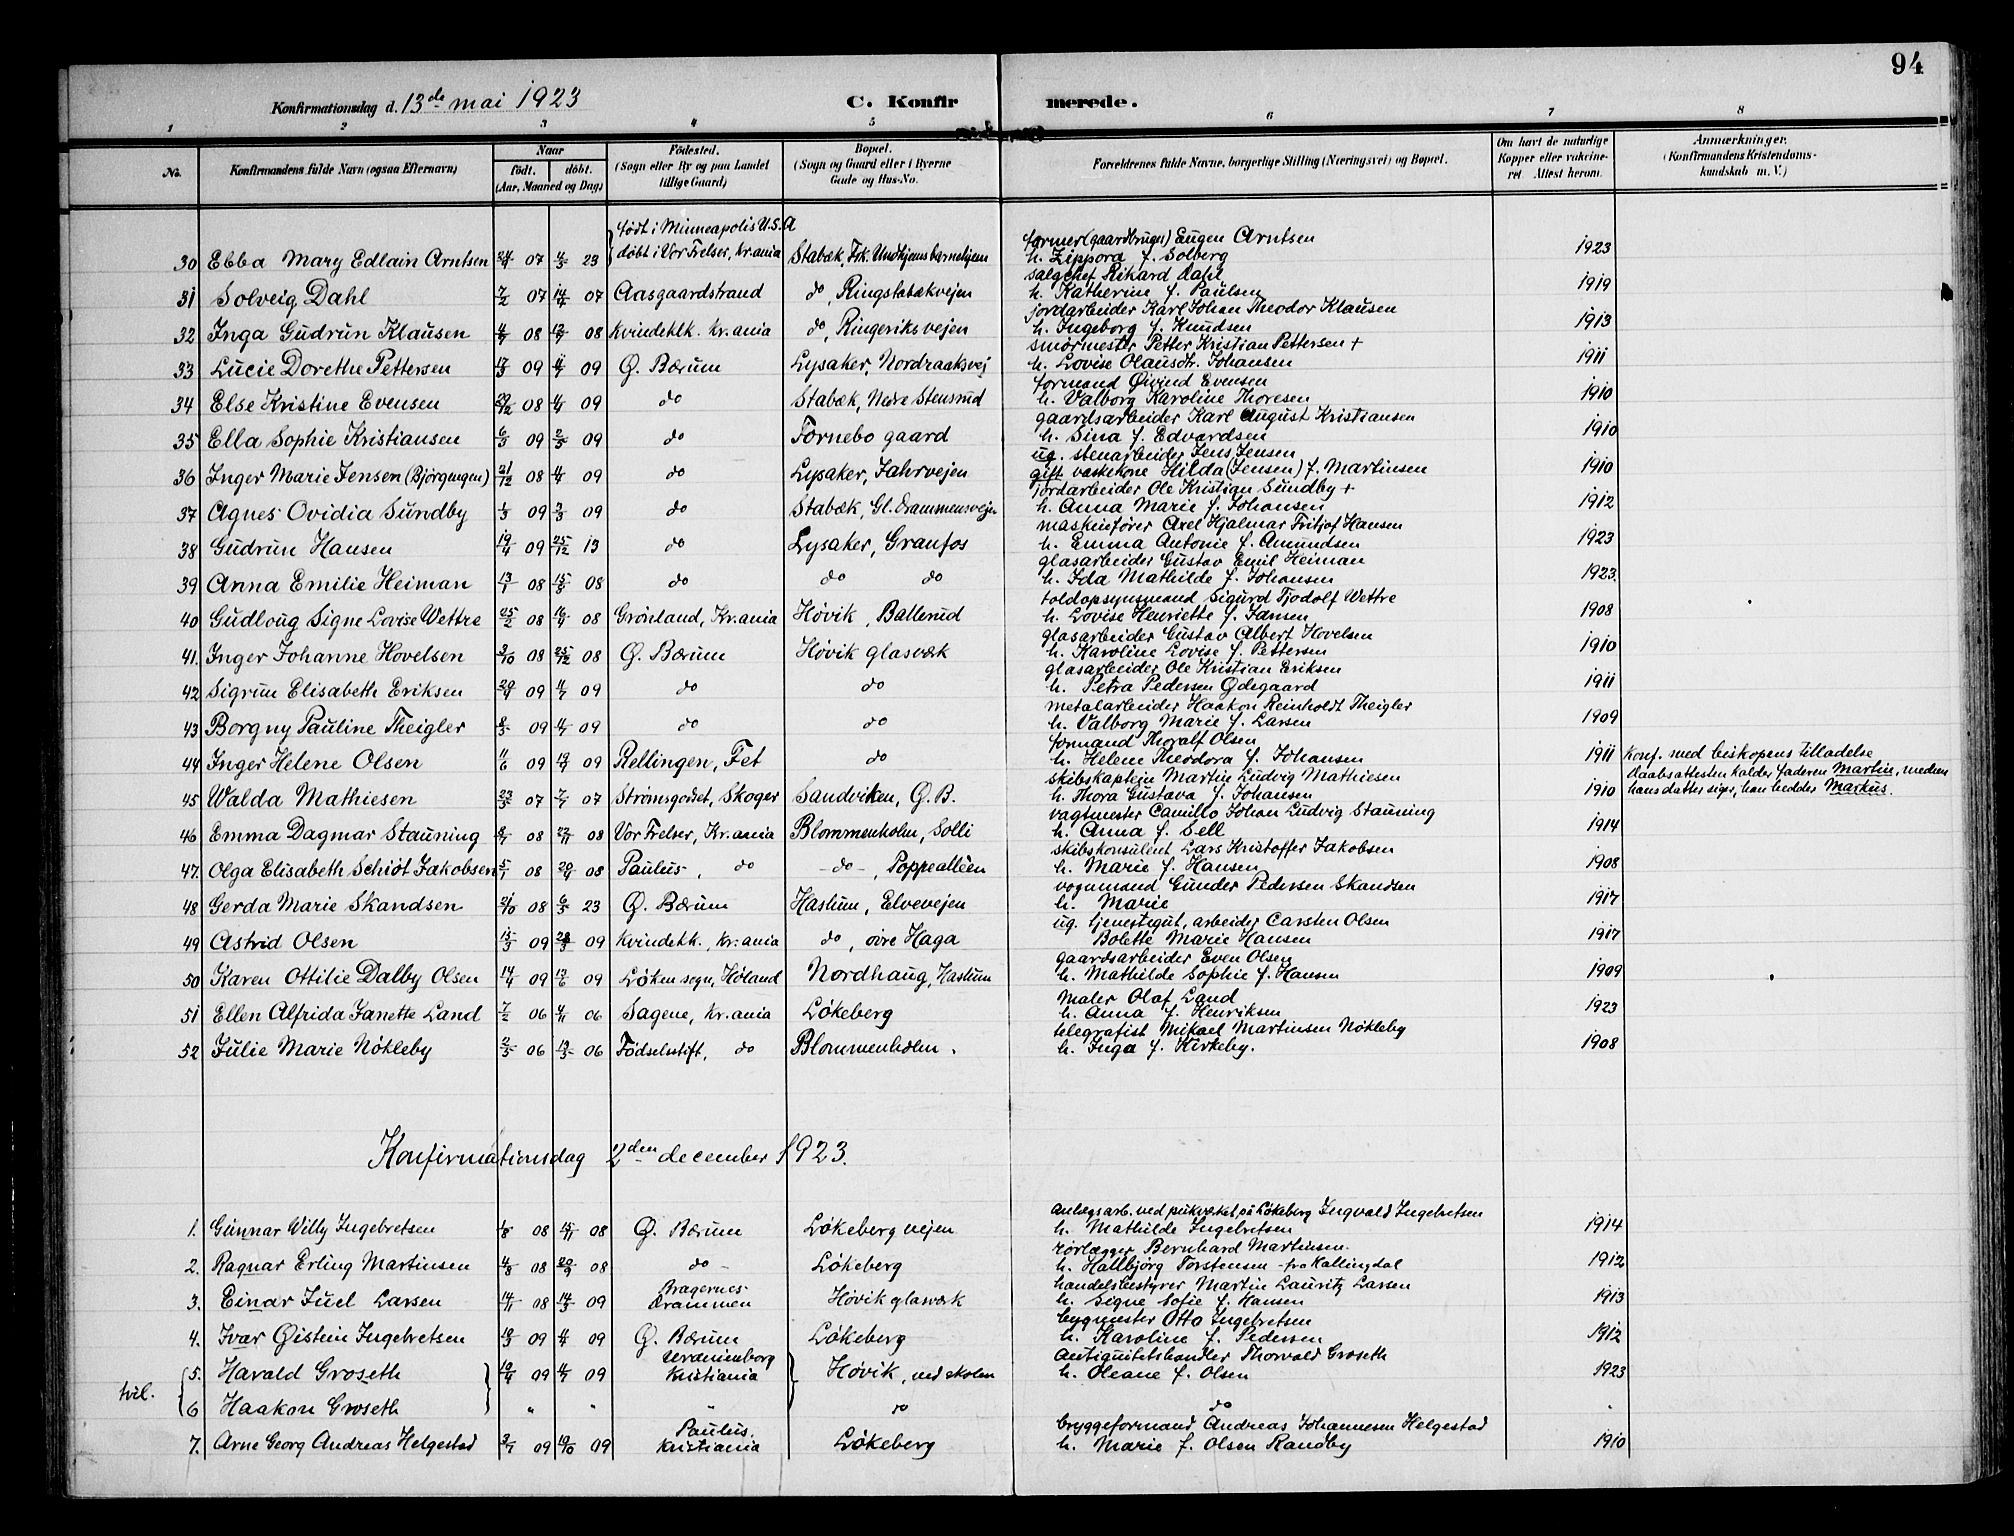 94
Konfirmationsdag d. 13de mai 1923 C. Konfirmerede.
1 2 3 4 5 6 7 8
No. Konfirmandens fulde Navn (ogsaa Efternavn) Naar født. døbt. (Aar, Maaned og Dag) Fødested. (Sogn eller By og paa Landet tillige Gaard) Bopæl. (Sogn og Gaard eller i Byerne Gade og Hus-No. Forældrenes fulde Navne, borgerlige Stilling (Næringsvei) og Bopæl. Om havt de naturlige Kopper eller vaccineret. Attest herom. Anmærkninger. (Konfirmandens Kristendomskundskab m. V.)
født i Minneapolis U.S.A
farmer (gaardbruger) Eugen Arntsen
30 Ebba Mary Edlain Arntsen 07 4/3 23 døbt i Vor Frelser, Kr.ania Stabæk, Frk. Undhjems barnehjem h. Zippora f. Solberg 1923
salgschef Rikard Dahl
31 Solveig Dahl 7/2 07 14/4 07 Aasgaardstrand do, Ringstabækvejen h. Katherine f. Paulsen 1919
jordarbeider Karl Johan Theodor Klausen
32 Inga Gudrun Klausen 08 08 Kvindeklk. Kr.ania do, Ringeriksvejen h. Ingeborg f. Knudsen 1913
smörmester Petter Kristian Pettersen +
33 Lucie Dorethe Pettersen 17/3 09 09 Ø. Bærum Lysaker, Nordraaksvej h. Lovise Olausdtr. Johansen 1911
formand Øivind Evensen
34 Else Kristine Evensen 29/12 08 4/4 09 do Stabæk, Nedre Stensrud h. Valborg Karoline Thoresen 1910
gaardsarbeider Karl August Kristiansen
35 Ella Sophie Kristiansen 6/3 09 2/5 09 do Fornebo gaard h. Sina f. Edvardsen 1910
ug. stenarbeider Jens Jensen
36 Inger Marie Jensen (Bjørgengen) 21/12 08 4/4 09 do Lysaker, Jahrvejen gift vaskekone Hilda (Jensen) f. Martinsen 1910
jordarbeider Ole Kristian Sundby +
37 Agnes Ovidia Sundby 1/3 09 09 do Stabæk, Gl. Drammensvejen h. Anna Marie f. Johansen 1912
maskinfører Axel Hjalmar Fritjof Hansen
38 Gudrun Hansen 19/4 09 25/12 13 do Lysaker, Granfos h. Emma Antonie f. Amundsen 1923
glasarbeider Gustav Emil Heiman
39 Anna Emilie Heiman 13/1 08 15/3 08 do do do h. Ida Mathilde f. Johansen 1923.
toldopsynsmand Sigurd Tjodolf Wettre
40 Gudloug Signe Lovise Wettre 25/2 08 08 Grönland, Kr.ania Høvik, Ballerud h. Lovise Henriette f. Jansen 1908
glasarbeider Gustav Albert Hovelsen
41. Inger Johanne Hovelsen 3/10 08 25/12 08 Ø. Bærum Høvik glasværk h. Karoline Lovise f. Pettersen 1910
glasarbeider Ole Kristian Eriksen
42 Sigrun Elisabeth Eriksen 09 09 do do h. Petra Pedersen Ødegaard 1911
metalarbeider Haakon Reinholdt Theigler
43 Borgny Pauline Theigler 09 09 do do h. Valborg Marie f. Larsen 1909
formand Thoralf Olsen
44 Inger Helene Olsen 11/6 09 19/9 09 Rellingen, Fet do h. Helene Theodora f. Johansen 1911 Konf. med biskopens tilladelse
skibskaptein Martin Ludvig Mathiesen Daabsattesten kalder faderen Martin, medens
45 Walda Mathiesen 07 07 Strømsgodset, Skoger Sandviken, Ø. B. h. Thora Gustava f. Johansen 1910 hans datter siger, han hedder Markus.
vagtmester Camillo Johan Ludvig Stauning
46 Emma Dagmar Stauning 08 22/11 08 Vor Frelser, Kr.ania Blommenholm, Solli h. Anna f. Sell 1914
skibskonsulent Lars Kristoffer Jakobsen
47. Olga Elisabeth Schiöt Jakobsen 08 08 Paulus, do - do -, Poppealléen h. Marie f. Hansen 1908
vognmand Gunder Pedersen Skandsen
48 Gerda Marie Skandsen 21/10 08 6/5 23 Ø. Bærum Haslum, Elvevejen h. Marie 1917
ug. tjenestegut, arbeider Carsten Olsen
49 Astrid Olsen 15/3 09 28/3 09 Kvindekk., Kr.ania do, övre Haga Bolette Marie Hansen 1917
gaardsarbeider Even Olsen
50 Karen Ottilie Dalby Olsen 14/4 09 13/6 09 Løken sogn, Høland Nordhaug, Haslum h. Mathilde Sophie f. Hansen 1909
Maler Olaf Land
51 Ellen Alfrida Janette Land 7/2 06 4/11 06 Sagene, Kr.ania Løkeberg h. Anna f. Henriksen 1923
telegrafist Mikael Martinsen Nökleby
52 Julie Marie Nökleby 2/3 06 13/3 06 Fødselsstift, do Blommenholm. h. Inga f. Kirkeby. 1908
Konfirmationsdag 2den december 1923.
anlægsarb. ved pukværket på Løkeberg Ingvald Ingebretsen
1. Gunnar Willy Ingebretsen 1/8 08 15/11 08 Ø. Bærum Løkeberg vejen h. Mathilde Ingebretsen 1914
rörlægger Bernhard Martinsen.
2. Ragnar Erling Martinsen 4/8 08 20/9 08 do - Løkeberg h. Hallbjørg Torstensen - fra Hallingdal 1912
Bragernes handelsbestyrer Martin Lauritz Larsen
3. Einar Juel Larsen 14/11 08 14/3 09 Drammen Høvik glasværk h. Signe Sofie f. Hansen 1913
bygmester Otto Ingebretsen
4. Ivar Øistein Ingebretsen 09 09 Ø. Bærum Løkeberg h. Karoline f. Pedersen 1912
Uranienborg antiquitetshandler Thorvald Groseth
5. Harald Groseth 09 09 Kristiania Høvik, ved skolen h. Oleane f. Olsen 1923
tvil.
6 Haakon Groseth " " " do do "
Paulus, bryggeformand Andreas Johannesen Helgestad
7. Arne Georg Andreas Helgestad 09 10/10 09 Kristiania Løkeberg h. Marie f. Olsen Randby 1910